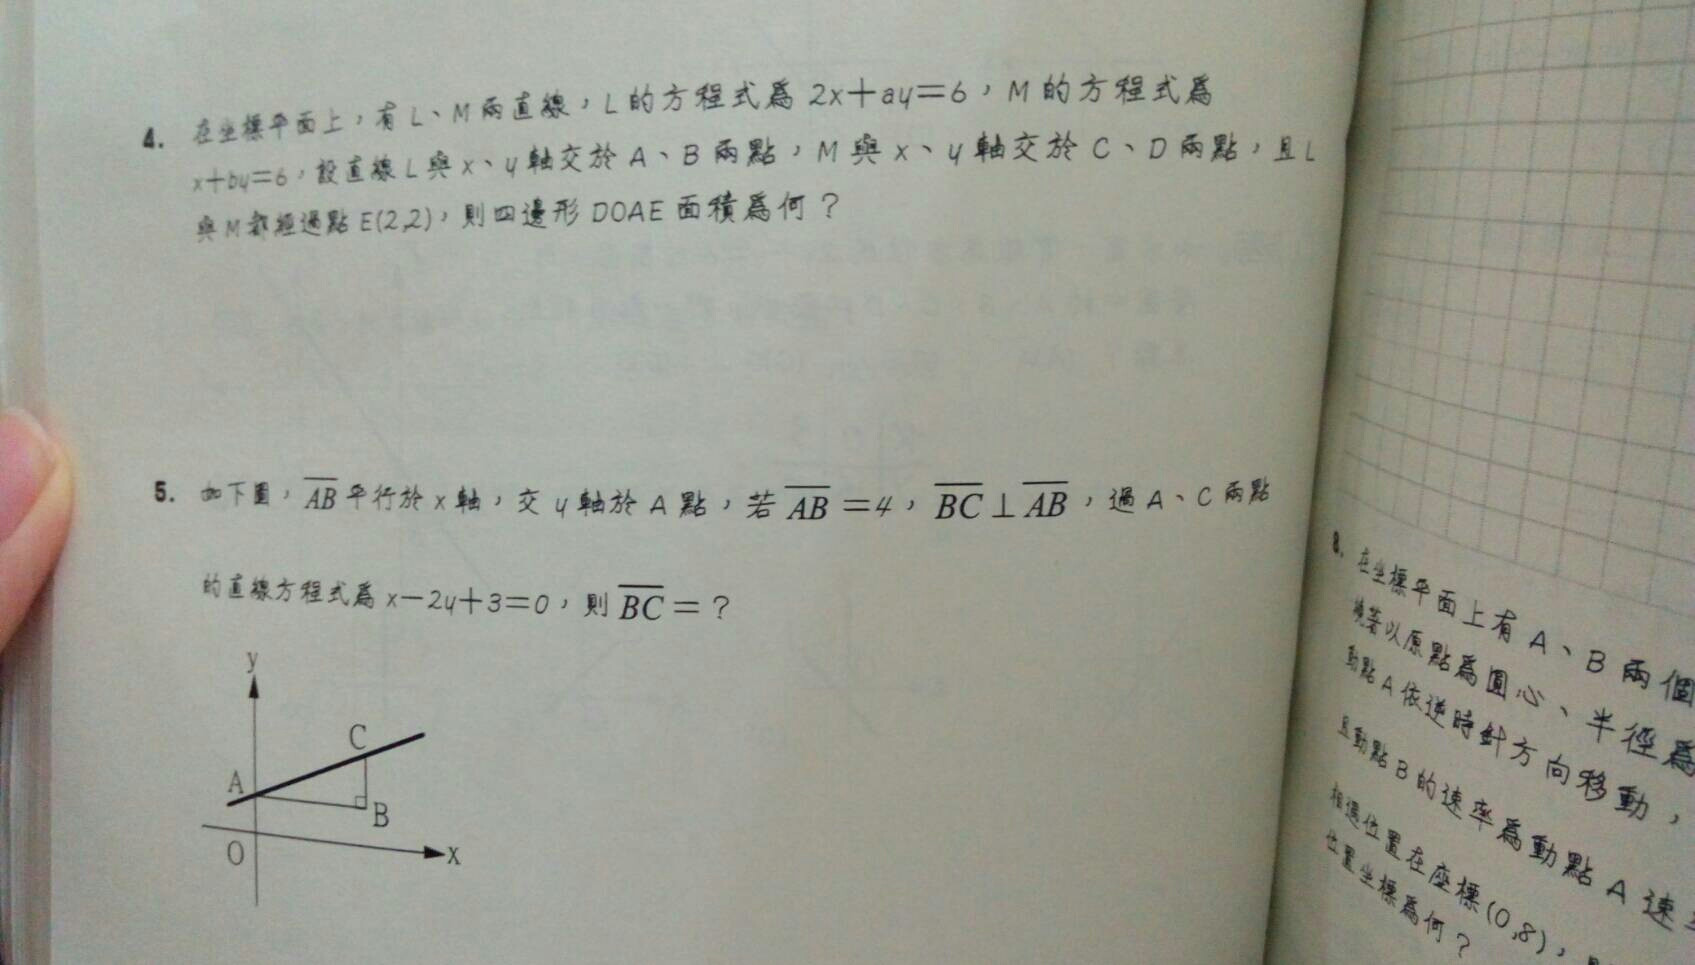 4. 在坐標平面上，有L、M兩直線，L的方程式為2x+ay=6，M的方程式為
x+by=6，設直線L與x、y軸交於A、B兩點，M與x、y軸交於C、D兩點，且L
與M都經過點E(2,2)，則四邊形DOAE面積為何？
5. 如下圖，AB平行於x軸，交y軸於A點，若AB=4，BC⊥AB，過A、C兩點
的直線方程式為x-2y+3=0，則BC=？
y
C
A
B
O
x
8. 在坐標平面上有A、B兩個
繞著以原點為圓心、半徑為
動點A依逆時針方向移動，
且動點B的速率為動點A速
相遇位置在座標(0,8)，
位置坐標為何？